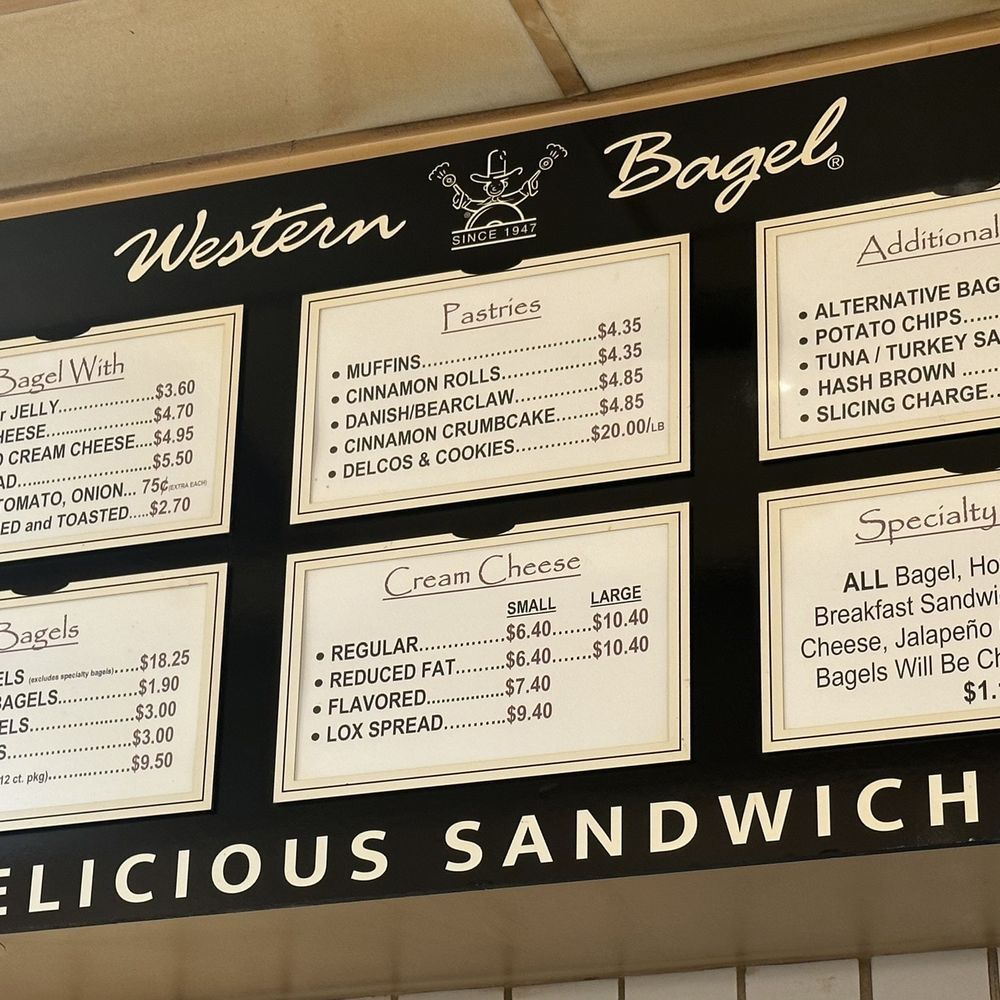 Western Bagel®
SINCE 1947
Bagel With
r JELLY..................$3.60
HEESE...................$4.70
D CREAM CHEESE....$4.95
AD........................$5.50
TOMATO, ONION... 75¢ (EXTRA EACH)
ED and TOASTED.....$2.70
Pastries
• MUFFINS..............................$4.35
• CINNAMON ROLLS................$4.35
• DANISH/BEARCLAW..............$4.85
• CINNAMON CRUMBCAKE.......$4.85
• DELCOS & COOKIES............$20.00/LB
Additional
• ALTERNATIVE BAG
• POTATO CHIPS......
• TUNA / TURKEY SA
• HASH BROWN ......
• SLICING CHARGE..
Bagels
ELS (excludes specialty bagels).....$18.25
BAGELS..............$1.90
ELS...................$3.00
S......................$3.00
12 ct. pkg)..........$9.50
Cream Cheese
SMALL LARGE
• REGULAR..............$6.40.......$10.40
• REDUCED FAT........$6.40.......$10.40
• FLAVORED.............$7.40
• LOX SPREAD..........$9.40
Specialty
ALL Bagel, Ho
Breakfast Sandwi
Cheese, Jalapeño
Bagels Will Be Ch
$1.
ELICIOUS SANDWICH